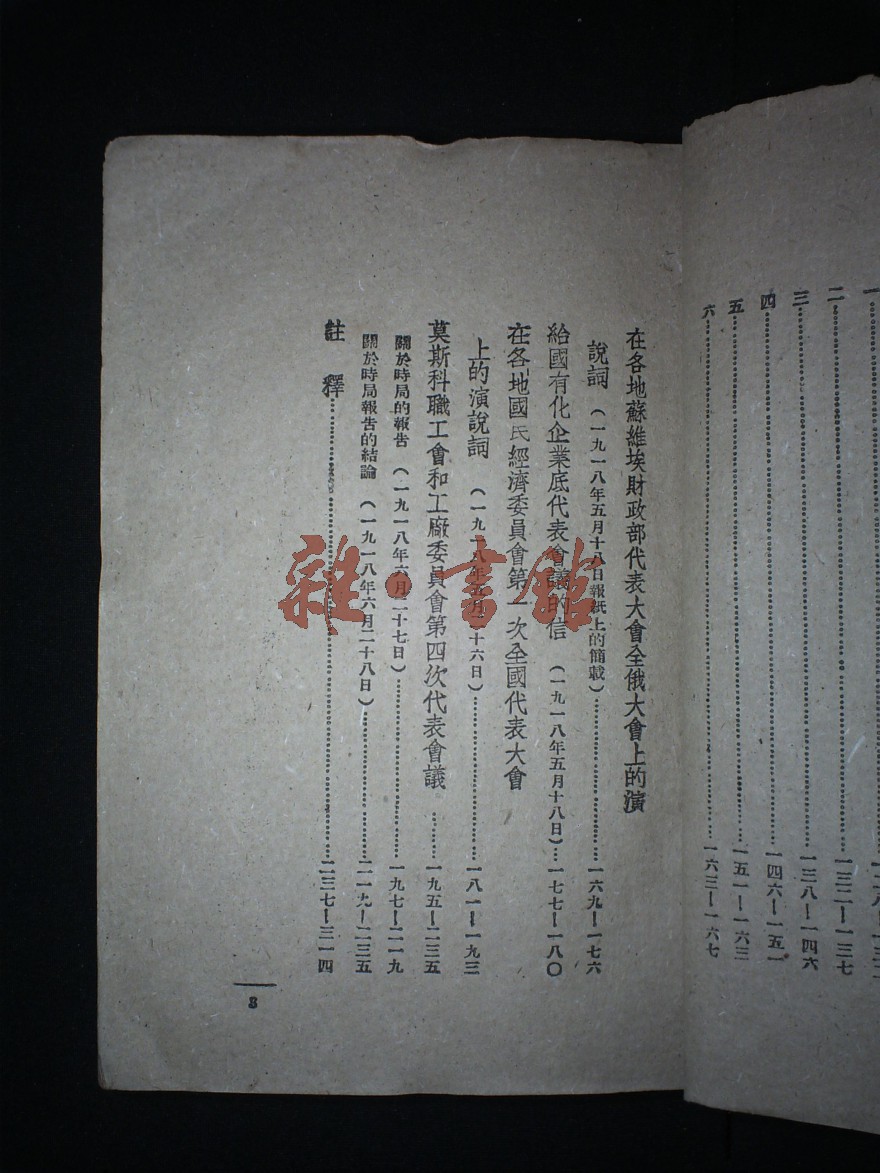 二……一三二—一三七
三……一三八—一四六
四……一四六—一五一
五……一五一—一六三
六……一六三—一六七
在各地蘇維埃財政部代表大會全俄大會上的演
說詞（一九一八年五月十八日報紙上的簡載）……一六九—一七六
給國有化企業底代表會議的信（一九一八年五月十八日）…一七七—一八〇
在各地國民經濟委員會第一次全國代表大會
上的演說詞（一九一八年五月二十六日）……一八一—一九三
莫斯科職工會和工廠委員會第四次代表會議……一九五—二三五
關於時局的報告（一九一八年六月二十七日）……一九七—二一九
關於時局報告的結論（一九一八年六月二十八日）……二一九—二三五
註釋……二三七—三一四
3
雜·書館